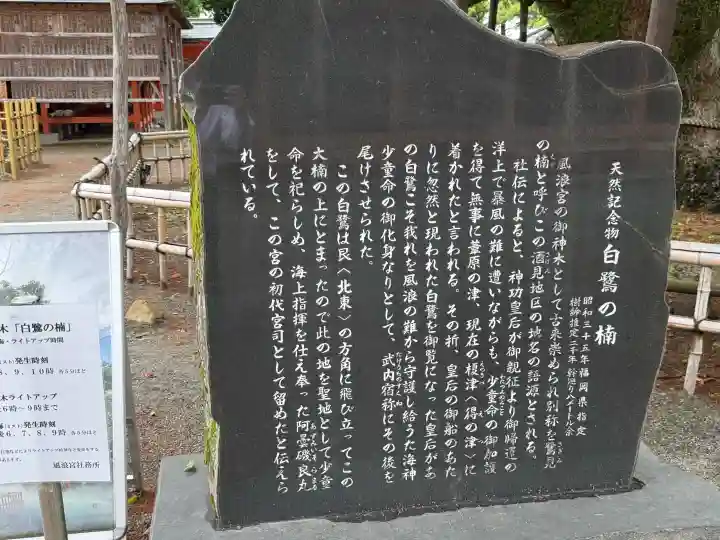 天然記念物 白鷺の楠
昭和三十五年福岡県指定
樹齢推定二千年 幹廻り八メートル余
風浪宮の御神木として古来崇められ別称を鷺見
の楠と呼びこの酒見地区の地名の語源とされる。
社伝によると、神功皇后が御親征より御帰還の
洋上で暴風の難に遭いながらも、少童命の御加護
を得て無事に葦原の津、現在の榎津〈得の津〉に
着かれたと言われる。その折、皇后の御船のあた
りに忽然と現われた白鷺を御覧になった皇后があ
の白鷺こそ我れを風浪の難から守護し給うた海神
少童命の御化身なりとして、武内宿祢にその後を
尾けさせられた。
この白鷺は艮〈北東〉の方角に飛び立ってこの
大楠の上にとまったので此の地を聖地として少童
命を祀らしめ、海上指揮を仕え奉った阿曇磯良丸
をして、この宮の初代宮司として留めたと伝えら
れている。
木「白鷺の楠」
ライトアップ時間
発生時刻
8、9、10時 各5分ほど
木ライトアップ
6時〜9時まで
発生時刻
後6、7、8、9時 各5分ほど
風浪宮社務所